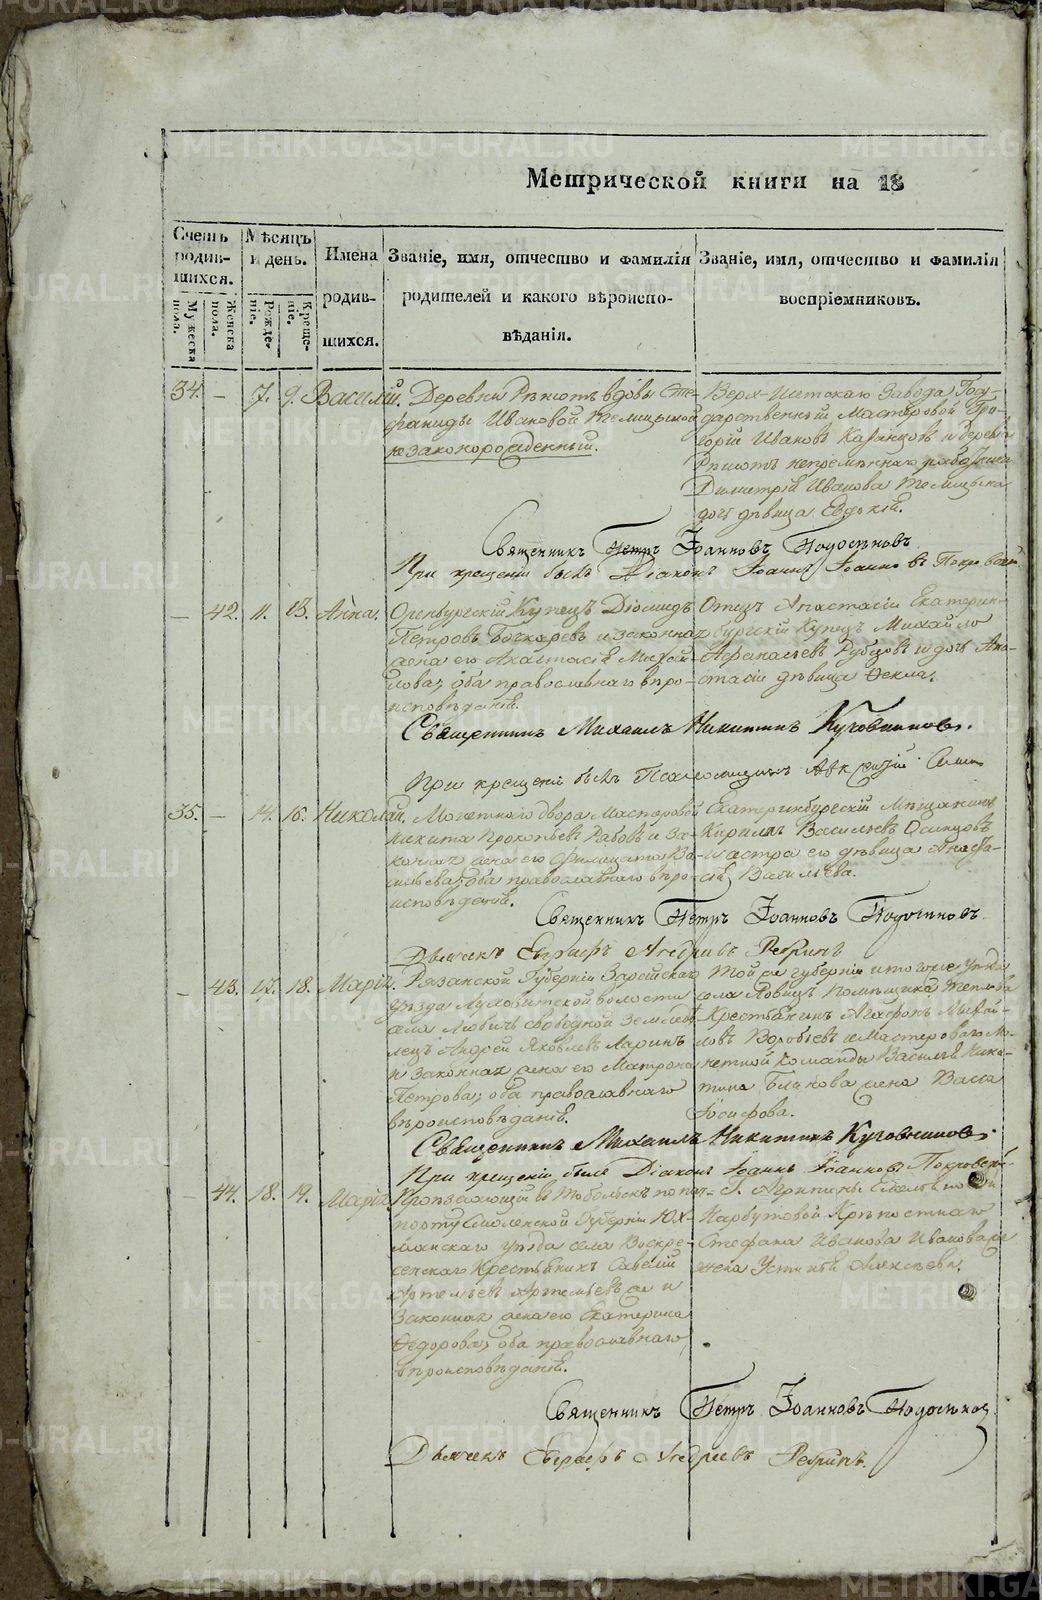 Метрической книги на 18
Счетъ родив-шихся.
Мужеска пола.
Женска пола.
Мѣсяцъ и день.
Рожде-ніе.
Креще-ніе.
Имена родив-шихся.
Званіе, имя, отчество и фамилія
родителей и какого вѣроиспо-
вѣданія.
Званіе, имя, отчество и фамилія
воспріемниковъ.
34. — 7. 9. Василій.
Деревни Рѣшотъ вдовы Сте-
фаниды Ивановой
незаконорожденный.
Верх-Истскаго завода Госу-
дарственный Мастеровой Гри-
горій Ивановъ Казанцовъ и деревни
Рѣшотъ непремѣннаго работника
Димитрія Иванова
дочь дѣвица Евдокія.
Священникъ Петръ Іоанновъ
При крещеніи былъ Діаконъ Іоаннъ Іоанновъ Покровскій
— 42. 11. 13. Анна.
Оренбургскій Купецъ Діомидъ
Петровъ Бочкаревъ и законная
жена его Анастасія Михай-
лова; оба православнаго вѣро-
исповѣданія.
Отецъ Анастасіи Екатерин-
бургскій Купецъ Михайло
Афанасьевъ Рубцовъ и дочь Ана-
стасіи дѣвица Фекла.
Священникъ Михаилъ Никитинъ
При крещеніи былъ Пономарь
35. — 14. 16. Николай.
Монетнаго двора Мастеровой
Никита Прокопьевъ Рабовъ и за-
конная жена его Филицата Ва-
сильева; оба православнаго вѣро-
исповѣданія.
Екатеринбургскій Мѣщанинъ
Кирилъ Васильевъ Осинцовъ
и сестра его дѣвица Анаста-
сія Васильева.
Священникъ Петръ Іоанновъ
Дьячекъ Евграфъ Андреевъ
— 43. 17. 18. Марія.
Рязанской Губерніи Зарайскаго
уѣзда Луховитской волости
села Любичъ свободной Землевла-
лецъ Андрей Яковлевъ Ларинъ
и законная жена его Матрона
Петрова; оба православнаго
вѣроисповѣданія.
Той же губерніи и того же уѣзда
села Ловицъ помѣщика
Крестьянинъ Агафонъ Михай-
ловъ Воробьевъ и Мастероваго Мо-
нетной Команды Василья Ники-
тина жена Васса
Іосифова.
Священникъ Михаилъ Никитинъ
При крещеніи былъ Діаконъ Іоаннъ Іоанновъ Покровскій
— 44. 18. 19. Марія.
Проѣзжающій въ Тобольскъ по пас-
порту Смоленской Губерніи Юх-
новскаго уѣзда села Воскре-
сенскаго Крестьянинъ Савелій
Артемьевъ и
законная жена его Екатерина
Федорова; оба православнаго
вѣроисповѣданія.
Г. Агрипины
Карбутовой Крѣпостнаго
Стефана Иванова Иванова
жена Устинья Алексѣева.
Священникъ Петръ Іоанновъ
Дьячекъ Евграфъ Андреевъ
METRIKI.GASO-URAL.RU